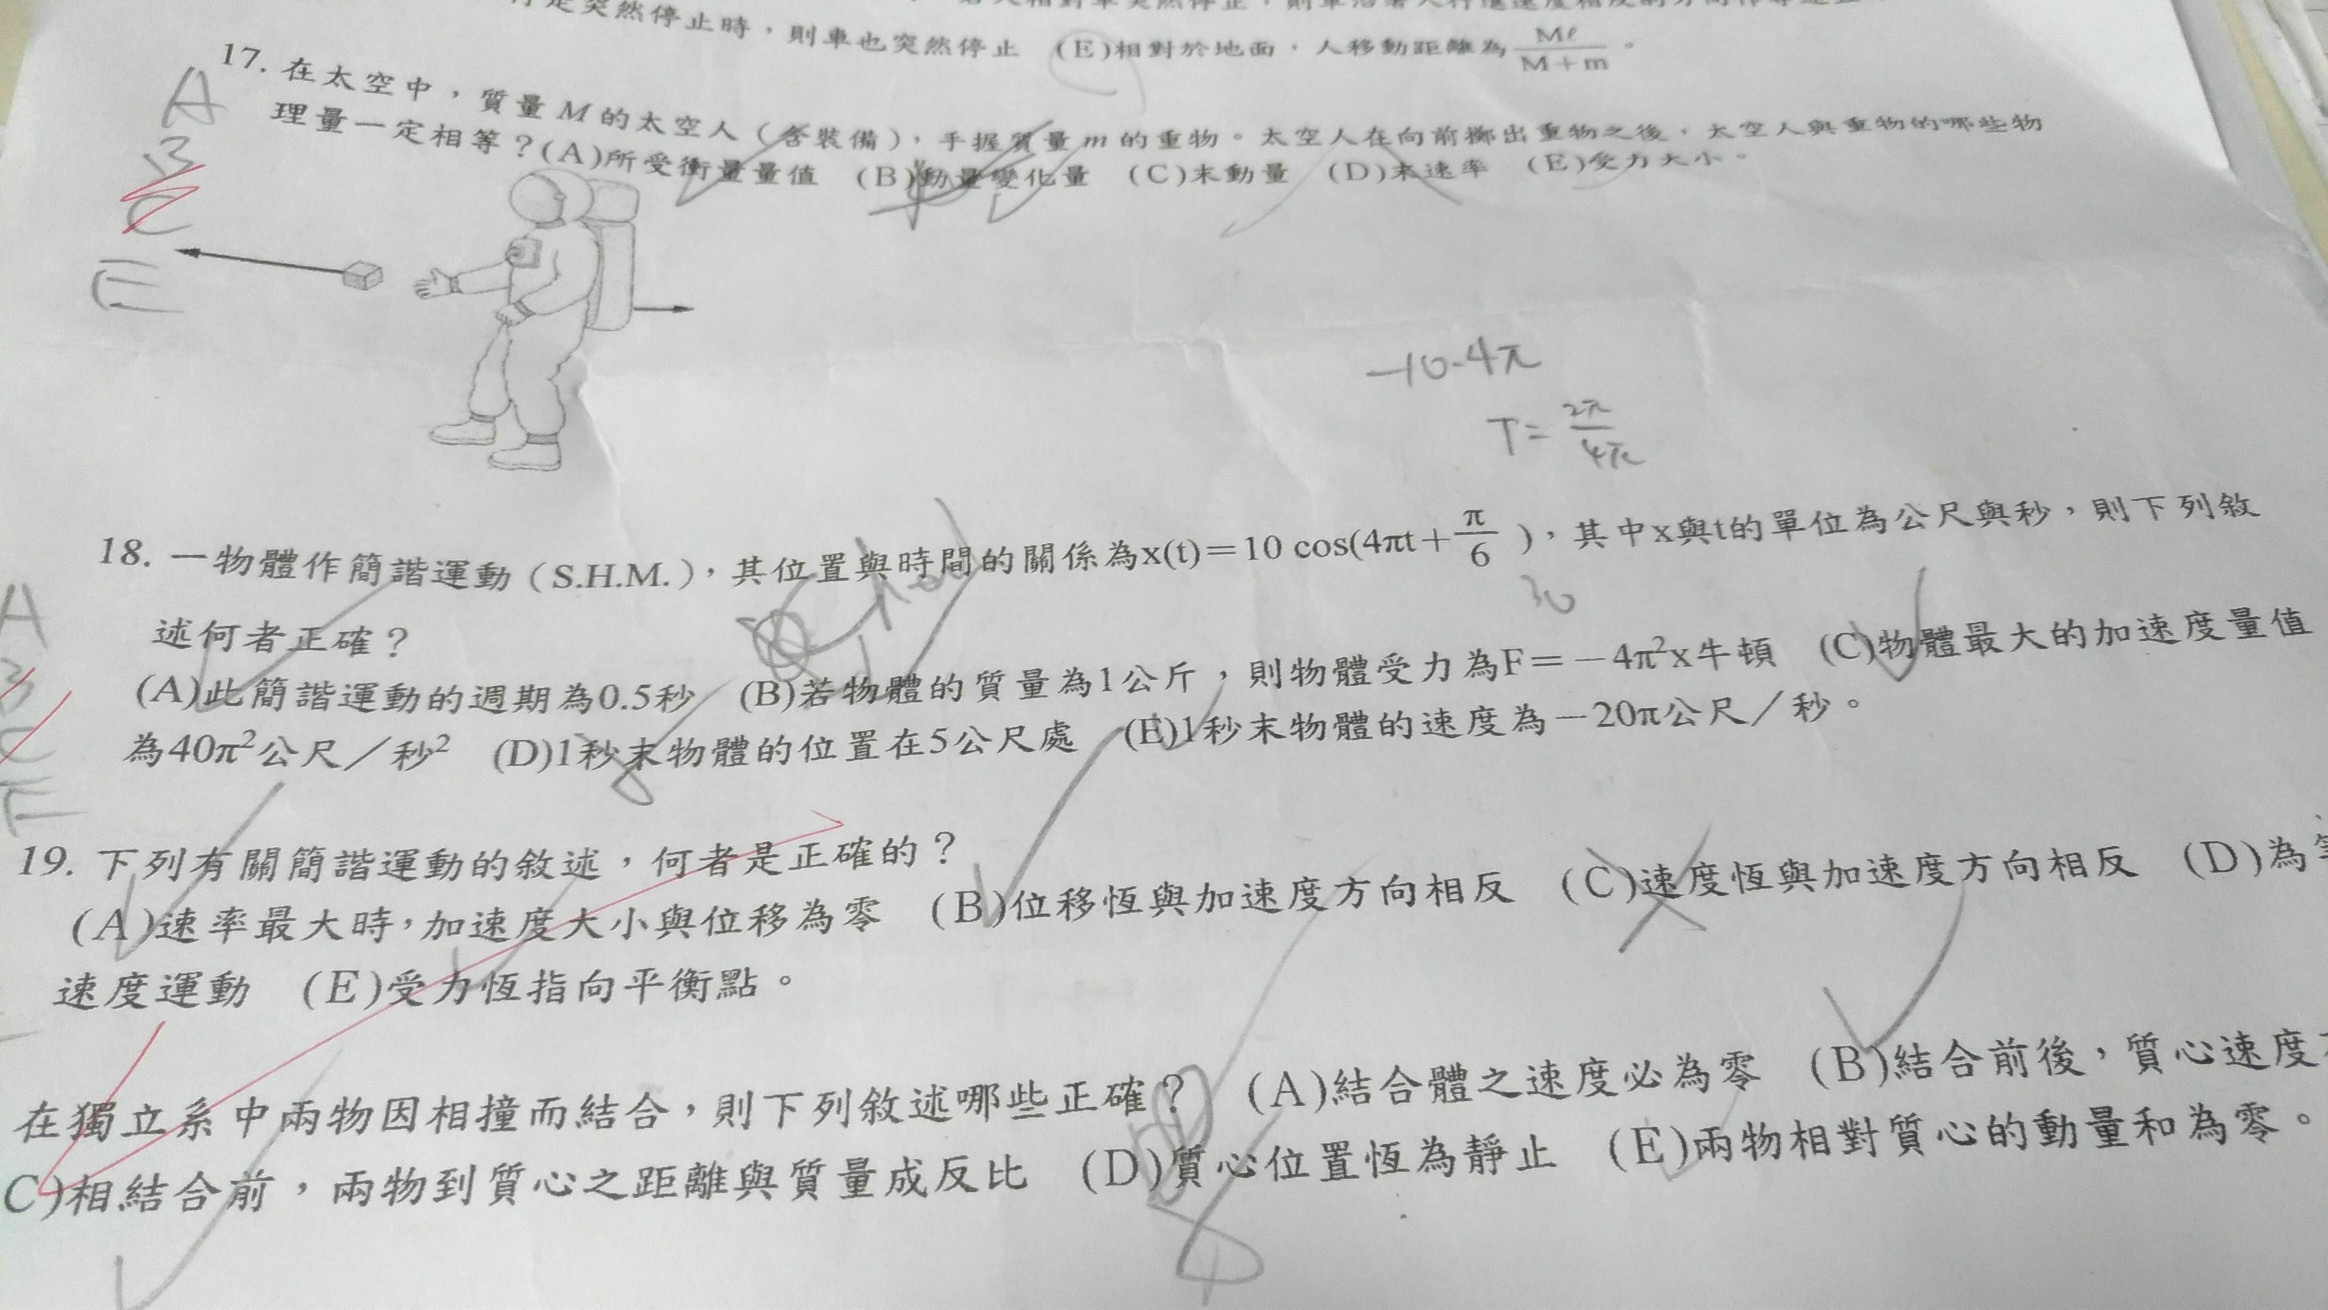 突然停止時，則車也突然停止 (E)相對於地面，人移動距離為 Mℓ/M+m。
17. 在太空中，質量M的太空人（含裝備），手握質量m的重物。太空人在向前擲出重物之後，太空人與重物的哪些物
理量一定相等？(A)所受衝量量值 (B)動量變化量 (C)末動量 (D)末速率 (E)受力大小。
A
B
C
E
-10·4π
T=2π/4π
18. 一物體作簡諧運動（S.H.M.），其位置與時間的關係為x(t)＝10 cos(4πt＋π/6)，其中x與t的單位為公尺與秒，則下列敘
30
述何者正確？
(A)此簡諧運動的週期為0.5秒 (B)若物體的質量為1公斤，則物體受力為F＝－4π²x牛頓 (C)物體最大的加速度量值
為40π²公尺／秒² (D)1秒末物體的位置在5公尺處 (E)1秒末物體的速度為－20π公尺／秒。
A
B
C
E
19. 下列有關簡諧運動的敘述，何者是正確的？
(A)速率最大時，加速度大小與位移為零 (B)位移恆與加速度方向相反 (C)速度恆與加速度方向相反 (D)為等
速度運動 (E)受力恆指向平衡點。
在獨立系中兩物因相撞而結合，則下列敘述哪些正確？ (A)結合體之速度必為零 (B)結合前後，質心速度
C)相結合前，兩物到質心之距離與質量成反比 (D)質心位置恆為靜止 (E)兩物相對質心的動量和為零。